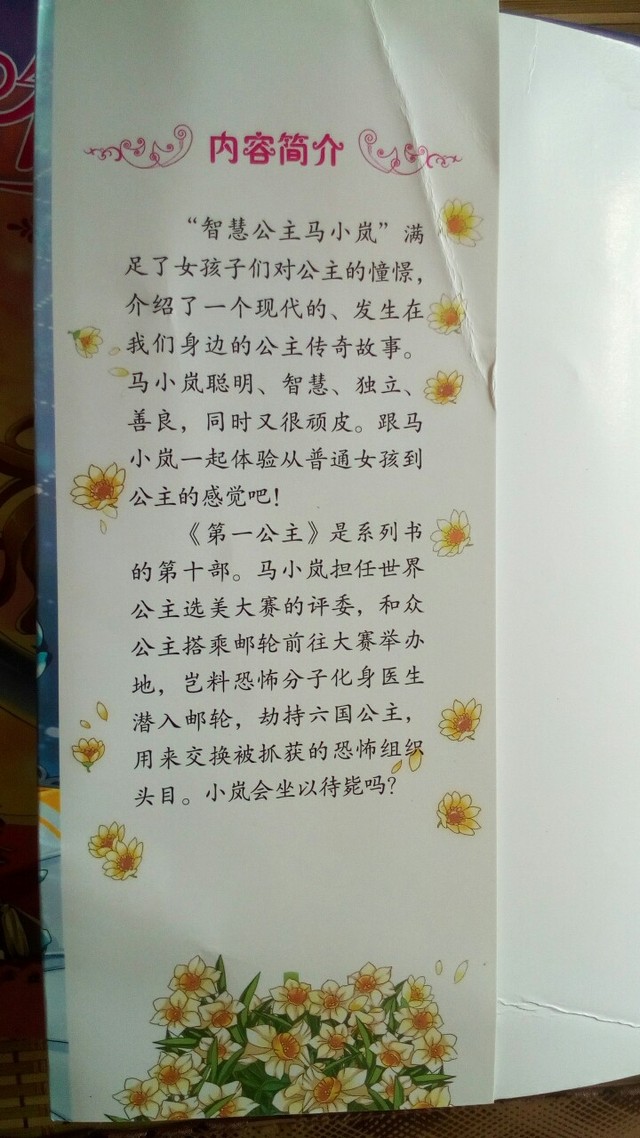 内容简介
“智慧公主马小岚”满
足了女孩子们对公主的憧憬，
介绍了一个现代的、发生在
我们身边的公主传奇故事。
马小岚聪明、智慧、独立、
善良，同时又很顽皮。跟马
小岚一起体验从普通女孩到
公主的感觉吧！
《第一公主》是系列书
的第十部。马小岚担任世界
公主选美大赛的评委，和众
公主搭乘邮轮前往大赛举办
地，岂料恐怖分子化身医生
潜入邮轮，劫持六国公主，
用来交换被抓获的恐怖组织
头目。小岚会坐以待毙吗？